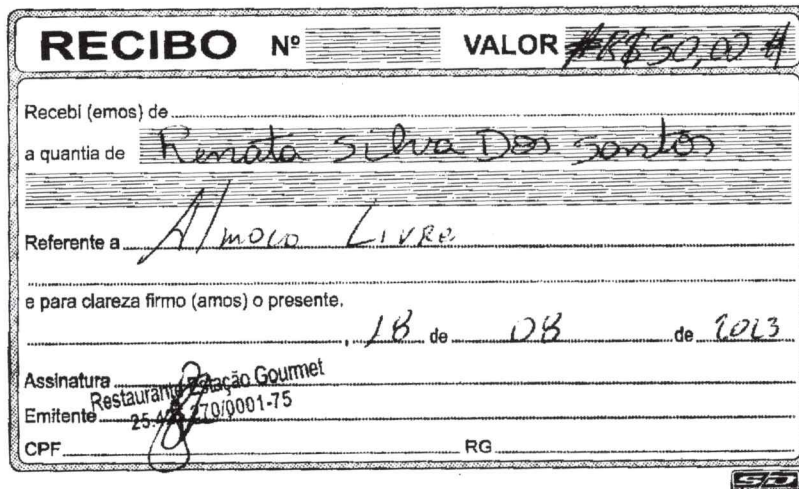 RECIBO Nº VALOR #R$50,00#
Recebi (emos) de
a quantia de Renata Silva Dos Santos
Referente a Almoco Livre
e para clareza firmo (amos) o presente.
, 18 de 08 de 2023
Assinatura
Restaurante Estação Gourmet
Emitente
270/0001-75
CPF RG